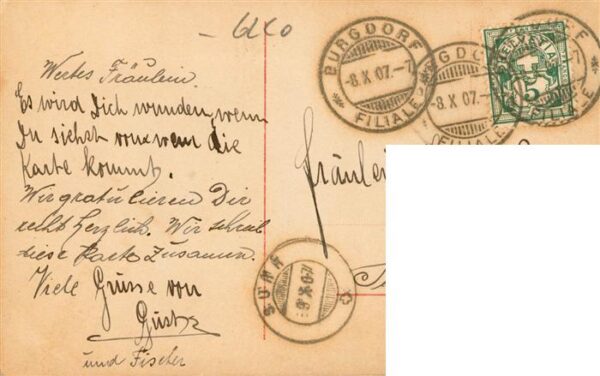 6220
Wertes Fräulein.
Es wird Dich wundern, wenn
Du siehst von wem die
Karte kommt.
Wir gratulieren Dir
recht herzlich. Wir schreib
diese Karte Zusamen.
Viele Grüsse von
Gust
und Fischer
BURGDORF
-8.X.07.-7
FILIALE
BURGDORF
-8.X.07.-7
FILIALE
HELVETIA
5
FILIALE
Fräulein
SUMI
X.07